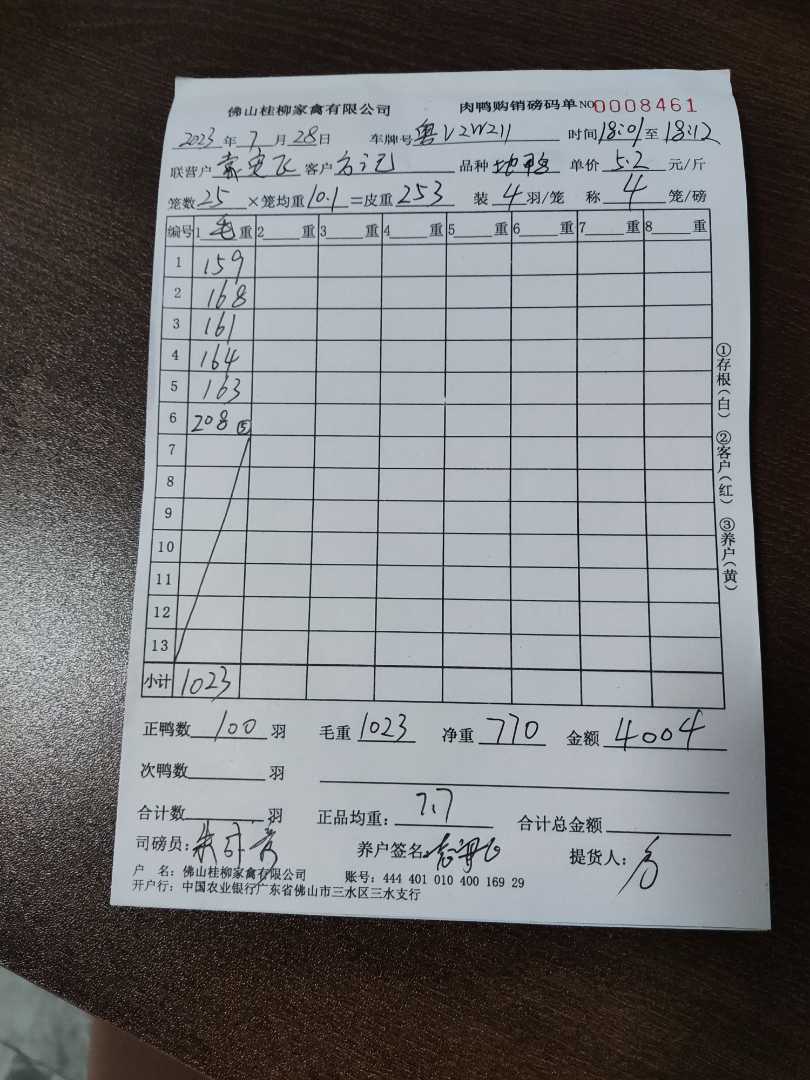 佛山桂柳家禽有限公司 肉鸭购销磅码单 NO 0008461
2023 年 7 月 28 日 车牌号 粤V2W211 时间 18:01 至 18:12
联营户 客户 方记 品种 地鸭 单价 5.2 元/斤
笼数 25 ×笼均重 10.1 =皮重 253 装 4 羽/笼 称 4 笼/磅
编号 1 毛 重 2 重 3 重 4 重 5 重 6 重 7 重 8 重
1 159
2 168
3 161
4 164
5 163
6 208 ⑤
7
8
9
10
11
12
13
小计 1023
正鸭数 100 羽 毛重 1023 净重 770 金额 4004
次鸭数 羽
合计数 羽 正品均重: 7.7 合计总金额
司磅员: 养户签名 提货人: 方
户 名: 佛山桂柳家禽有限公司 账号: 444 401 010 400 169 29
开户行: 中国农业银行广东省佛山市三水区三水支行
①存根(白) ②客户(红) ③养户(黄)